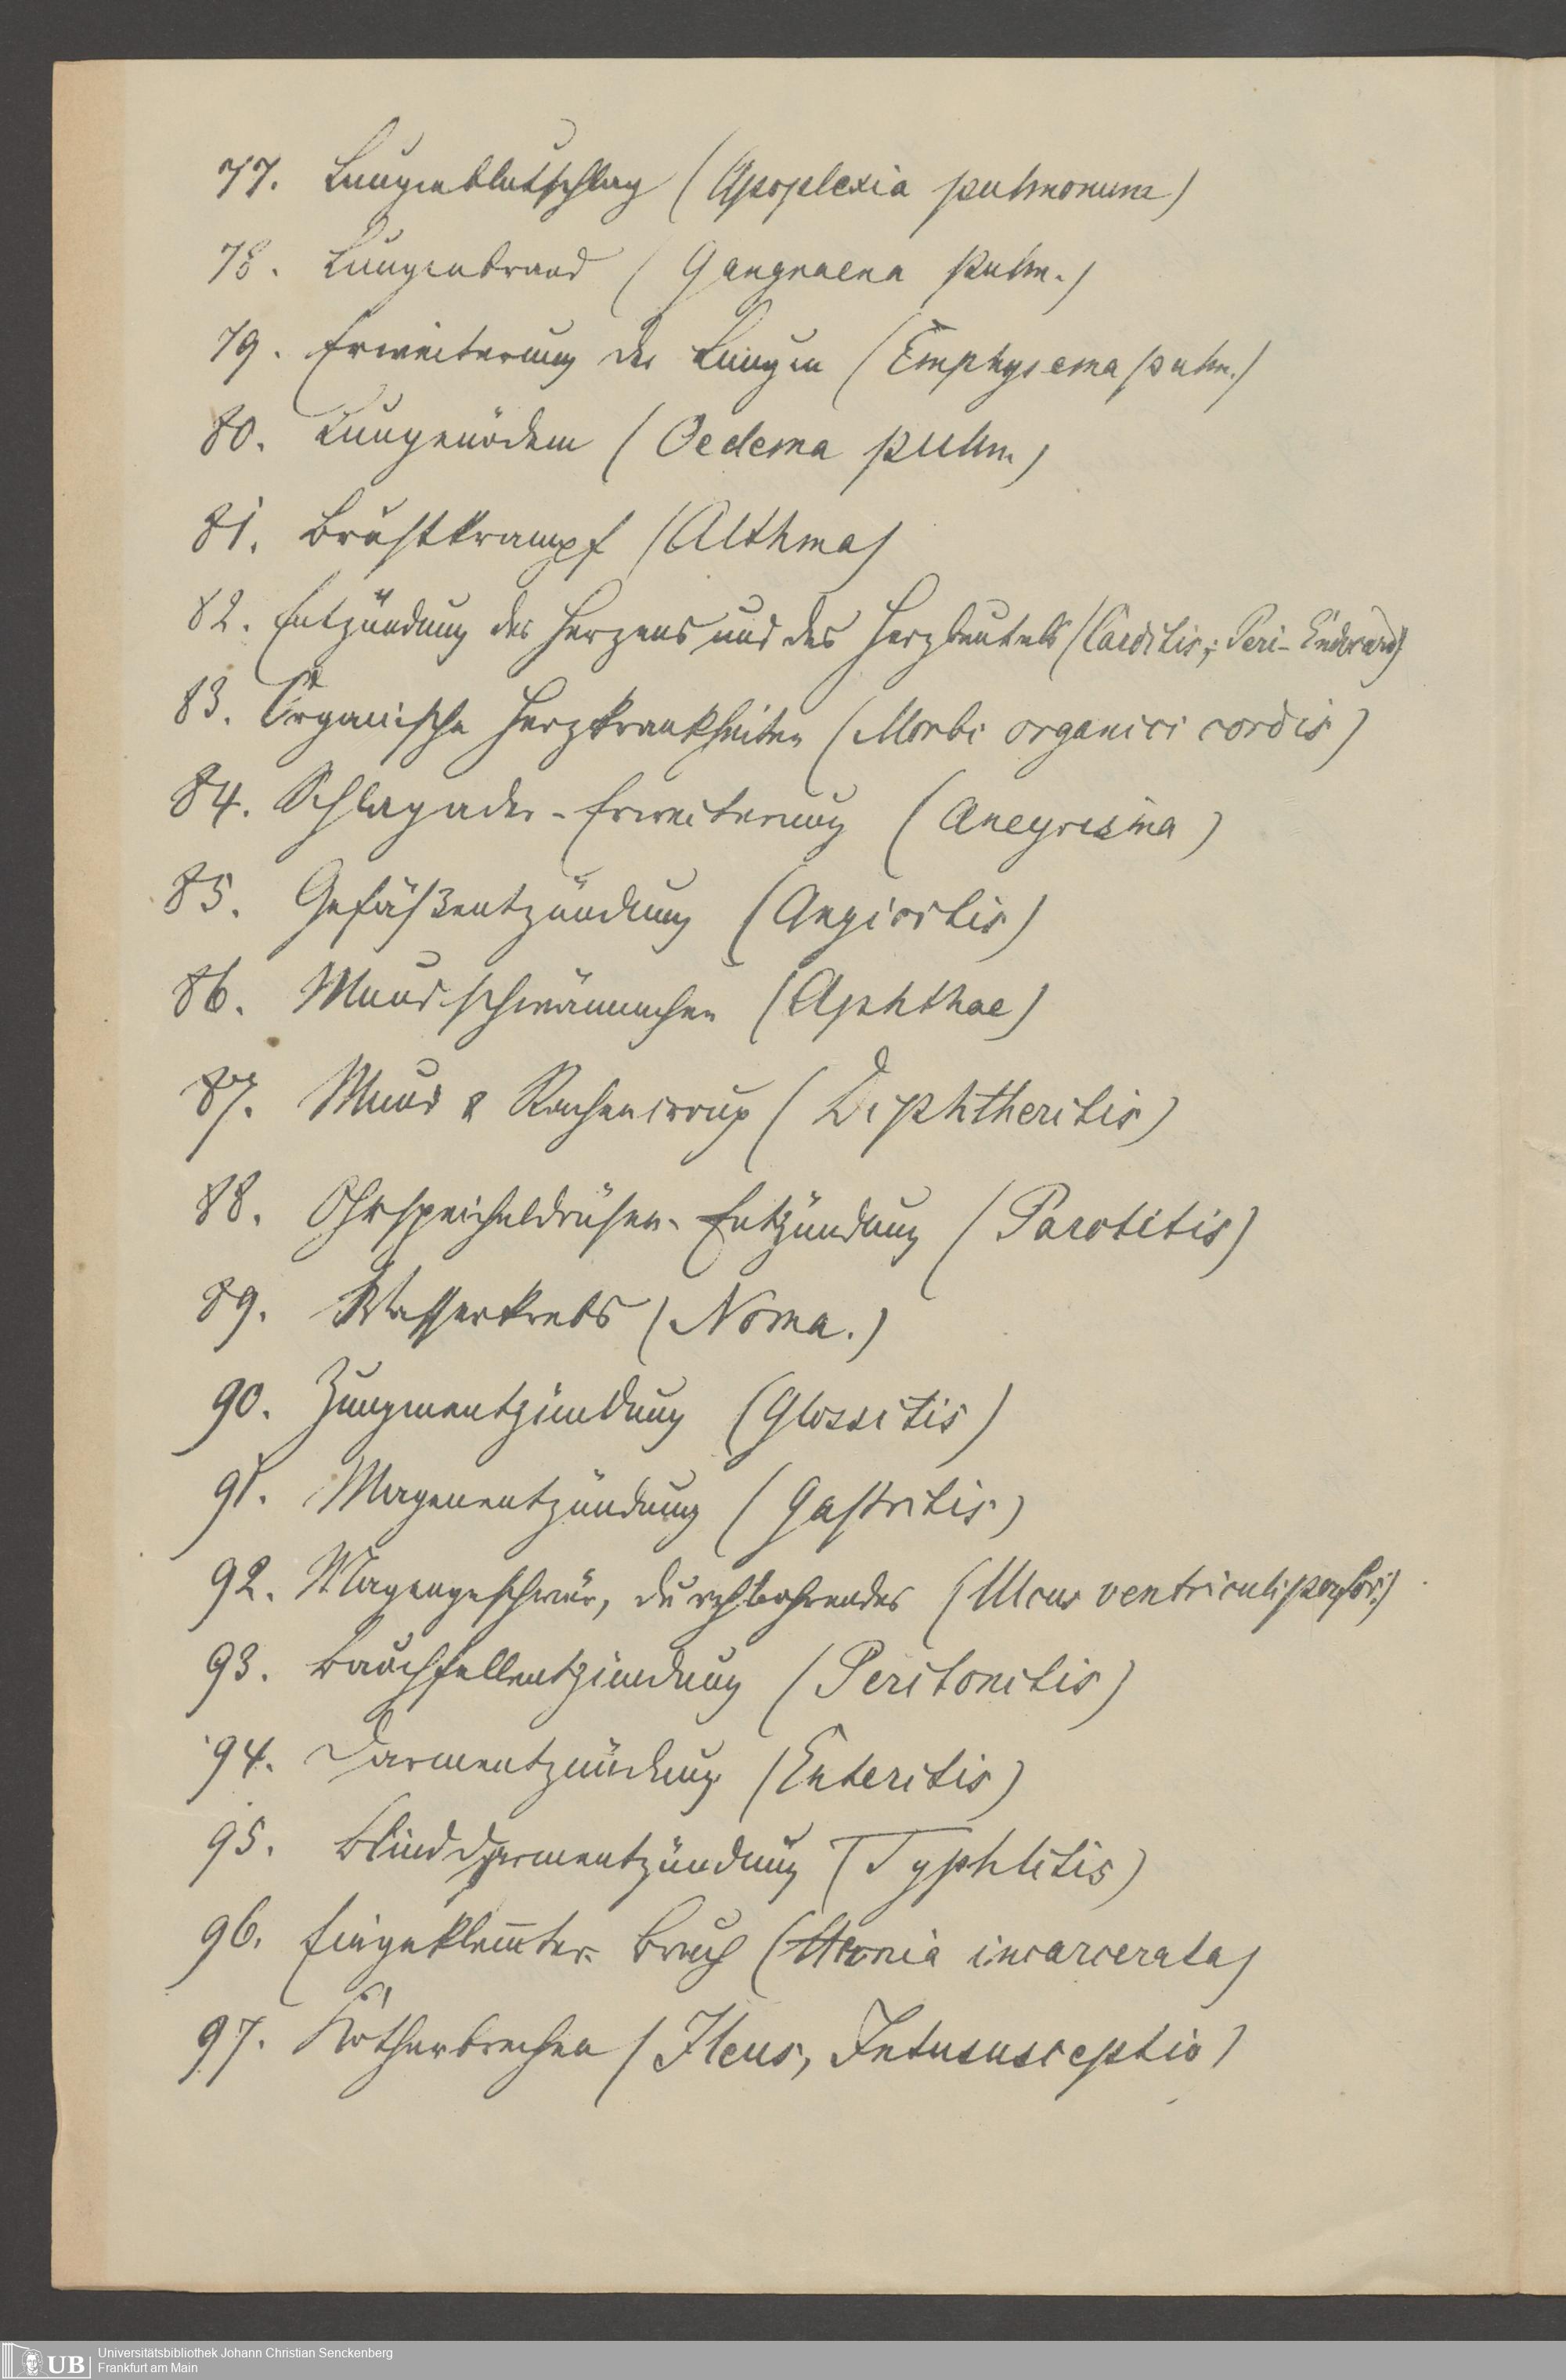 77. Lungenblutschlag (Apoplexia pulmonum)
78. Lungenbrand (Gangraena pulm.)
79. Erweiterung der Lungen (Emphysema pulm.)
80. Lungenödem (Oedema pulm.)
81. Brustkrampf (Asthma)
82. Entzündung des Herzens und des Herzbeutels (Carditis; Peri- Endocard)
83. Organische Herzkrankheiten (Morbi organici cordis)
84. Schlagader-Erweiterung (Aneyrisma)
85. Gefäßentzündung (Angioitis)
86. Mundschwämmchen (Aphthae)
87. Mund & Rachencroup (Diphtheritis)
88. Ohrspeicheldrüsen-Entzündung (Parotitis)
89. Wasserkrebs (Noma.)
90. Zungenentzündung (Glossitis)
91. Magenentzündung (Gastritis)
92. Magengeschwür, durchbohrendes (Ulcus ventriculi perfor.)
93. Bauchfellentzündung (Peritonitis)
94. Darmentzündung (Enteritis)
95. Blinddarmentzündung (Typhlitis)
96. Eingeklem̄ter Bruch (Hernia incarcerata)
97. Kotherbrechen (Ileus, Intususceptio)
UB Universitätsbibliothek Johann Christian Senckenberg
Frankfurt am Main